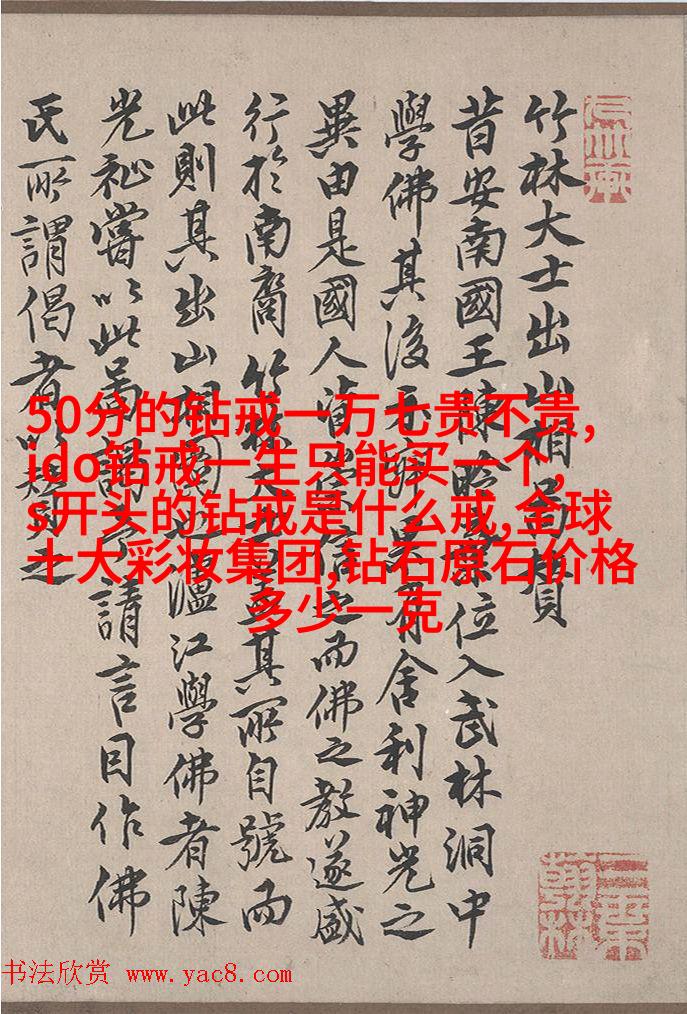 竹林大士出山相圖贊
昔安南國王陳昑棄位入武林洞中
學佛其後示寂果有舍利神光之
異由是國人皆信之而佛之教遂盛
行於南裔竹林大士盖其所自號而
此則其出山相圖也溫江學佛者陳
光祉嘗以此予請言因作佛
氏所謂偈者以之
50分的钻戒一万七贵不贵,
ido钻戒一生只能买一个,
s开头的钻戒是什么戒,全球
十大彩妆集团,钻石原石价格
多少一克
书法欣赏 www.yac8.com